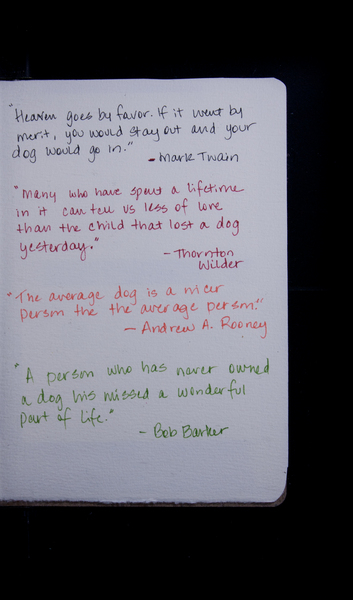 "Heaven goes by favor. If it went by
merit, you would stay out and your
dog would go in."
- Mark Twain
"Many who have spent a lifetime
in it can tell us less of love
than the child that lost a dog
yesterday."
- Thornton
Wilder
"The average dog is a nicer
person the the average person."
- Andrew A. Rooney
"A person who has never owned
a dog his missed a wonderful
part of life."
- Bob Barker